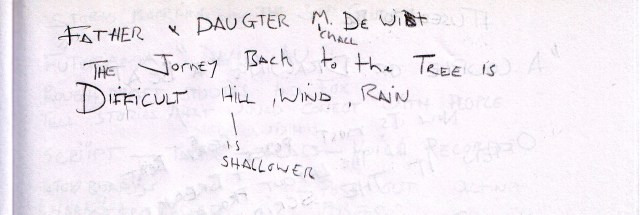 FATHER & DAUGTER M. DE WIT
CHALL
THE JORNEY BACK to the TREE is
DIFFICULT HILL, WIND, RAIN
IS
SHALLOWER